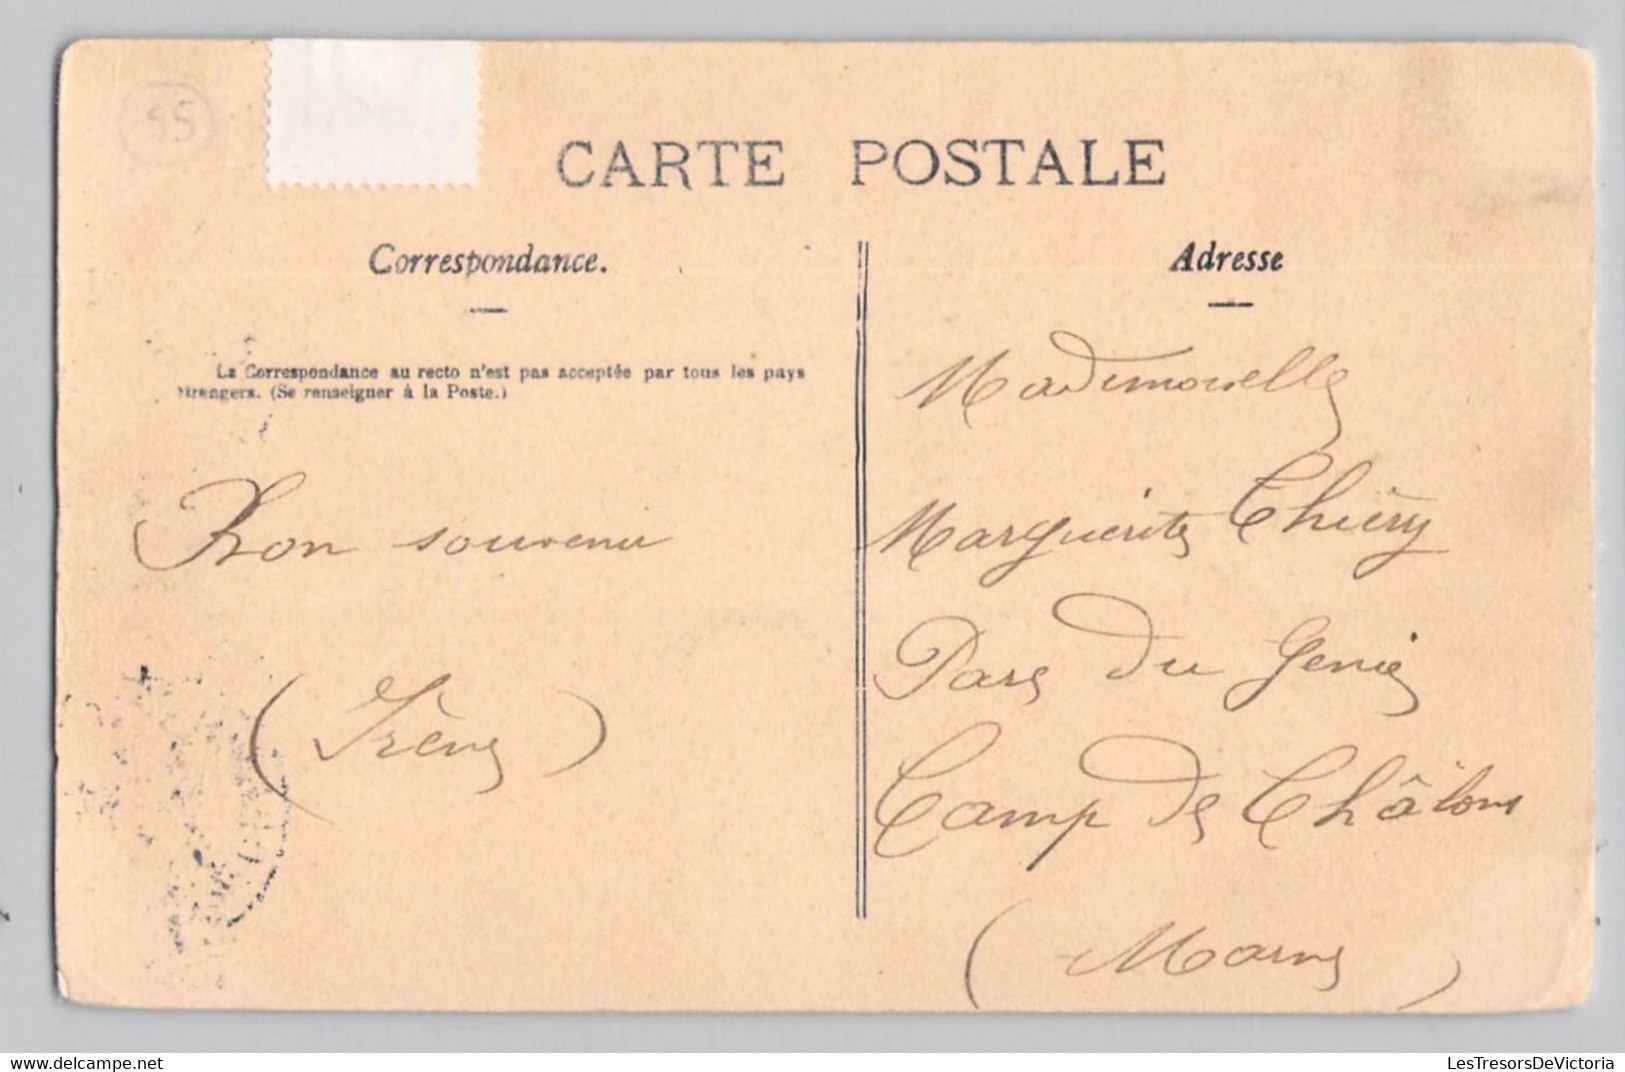 55
CARTE POSTALE
Correspondance.
La Correspondance au recto n'est pas acceptée par tous les pays
étrangers. (Se renseigner à la Poste.)
Bon souvenir
(Irène)
Adresse
Mademoiselle
Marguerite Thiéry
Parc du Génie
Camp de Châlons
(Marne)
www.delcampe.net
LesTresorsDeVictoria